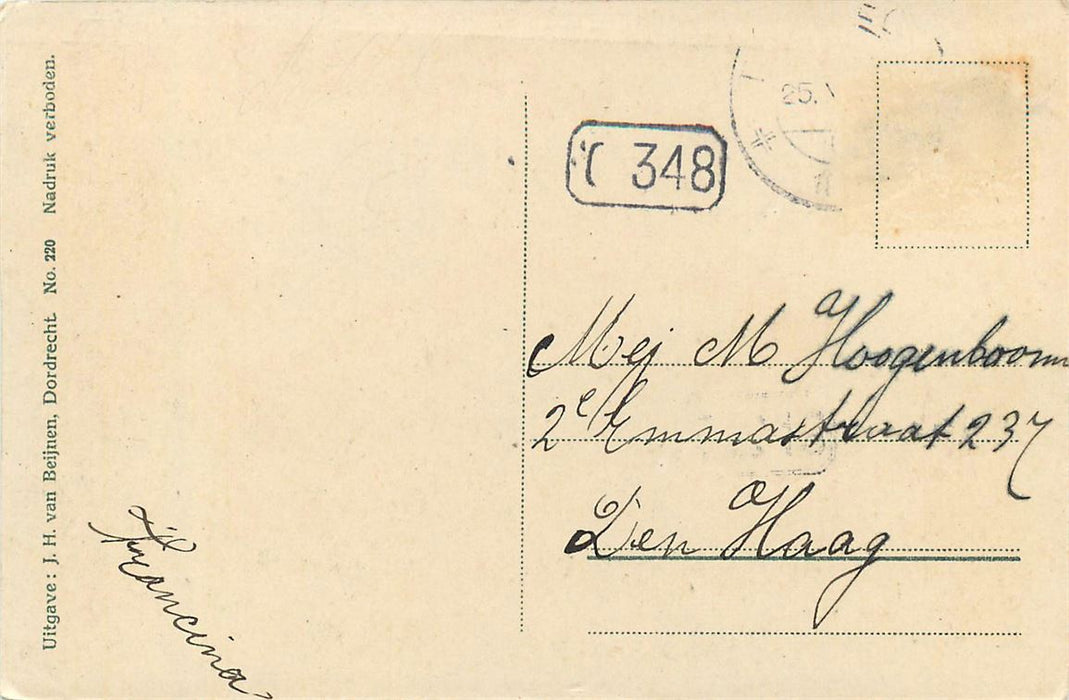 Uitgave: J. H. van Beijnen, Dordrecht. No. 220 Nadruk verboden.
25.
348
Mej M Hoogenboom
2e Emmastraat 237
Den Haag
Francina